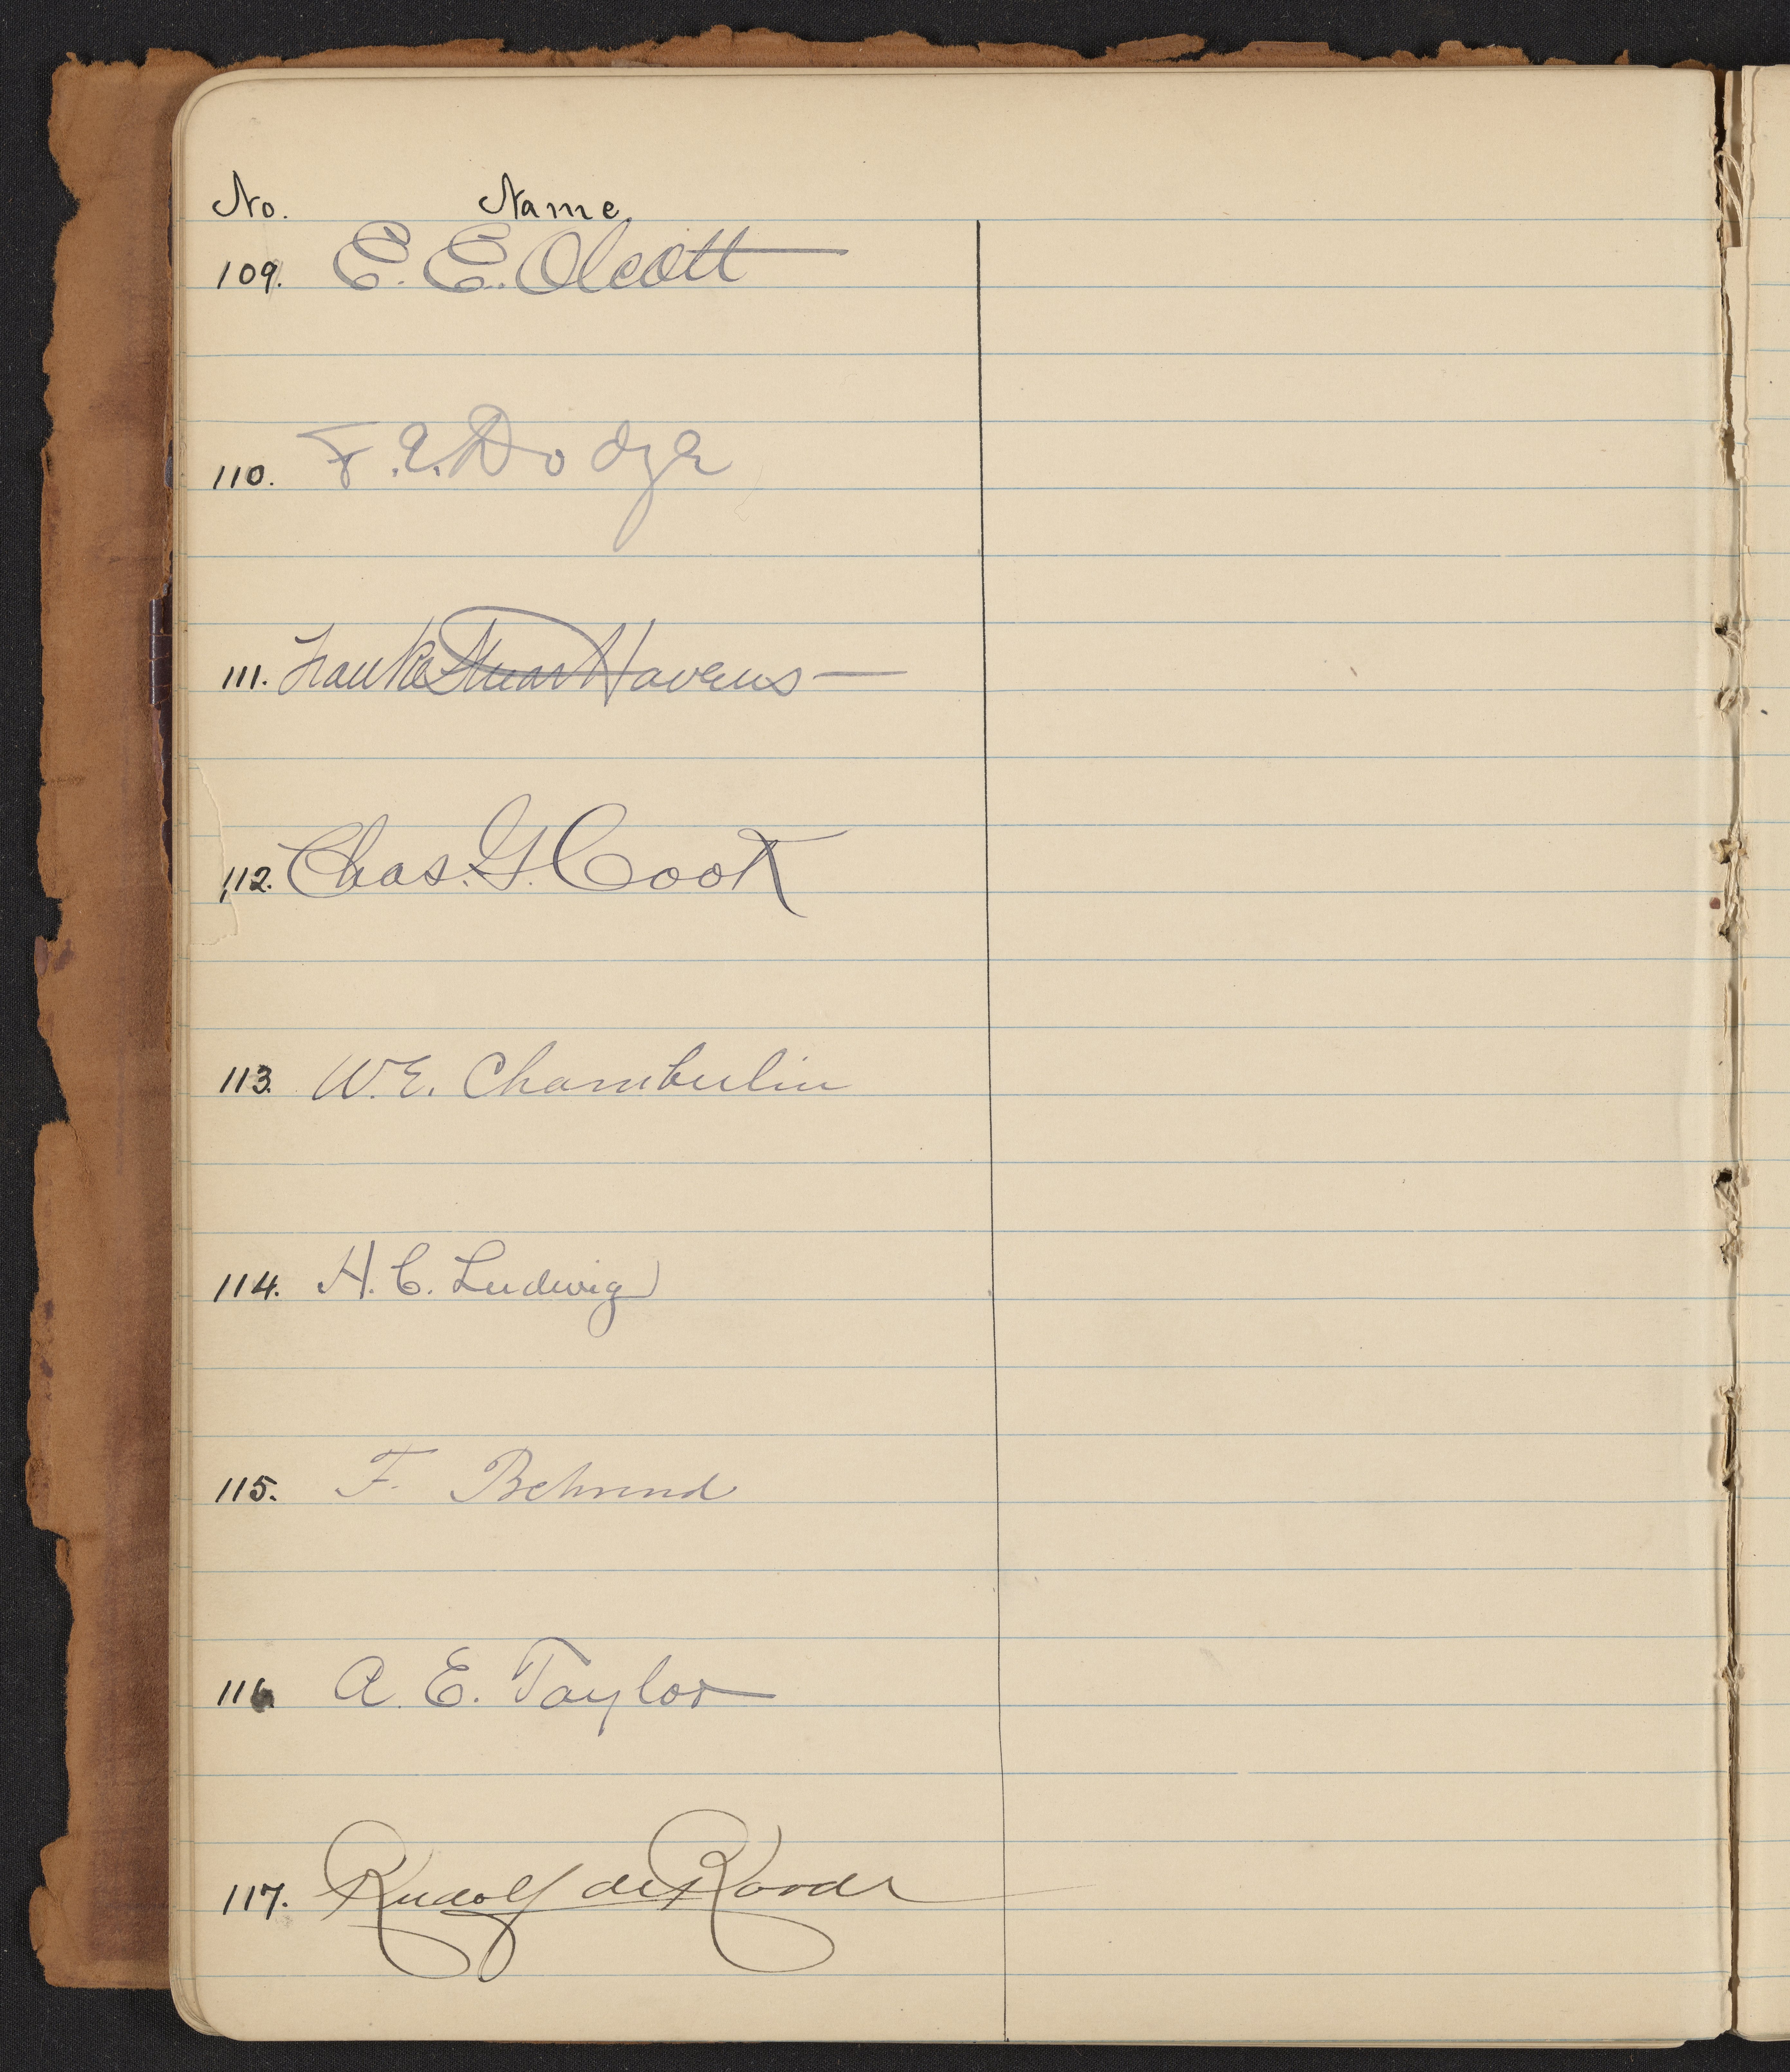 No. Name.
109. E. E. Olcott
110. F. E. Dodge
111. Havens
112. Chas. G. Cook
113. W. E. Chamberlin
114. H. C. Ludwig
115. F. Behrend
116. A. E. Taylor
117. Rudolf de Roode